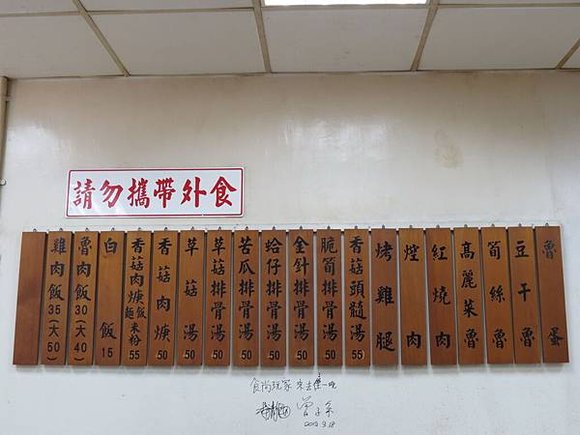 請勿攜帶外食
魯蛋
豆干魯
筍絲魯
高麗菜魯
紅燒肉
焢肉
烤雞腿
香菇頭髓湯 55
脆筍排骨湯 50
金針排骨湯 50
蛤仔排骨湯 50
苦瓜排骨湯 50
草菇排骨湯 50
草菇湯 50
香菇肉焿 50
香菇肉焿飯麵米粉 55
白飯 15
魯肉飯 30(大40)
雞肉飯 35(大50)
食尚玩家 來去住一晚
曾子余